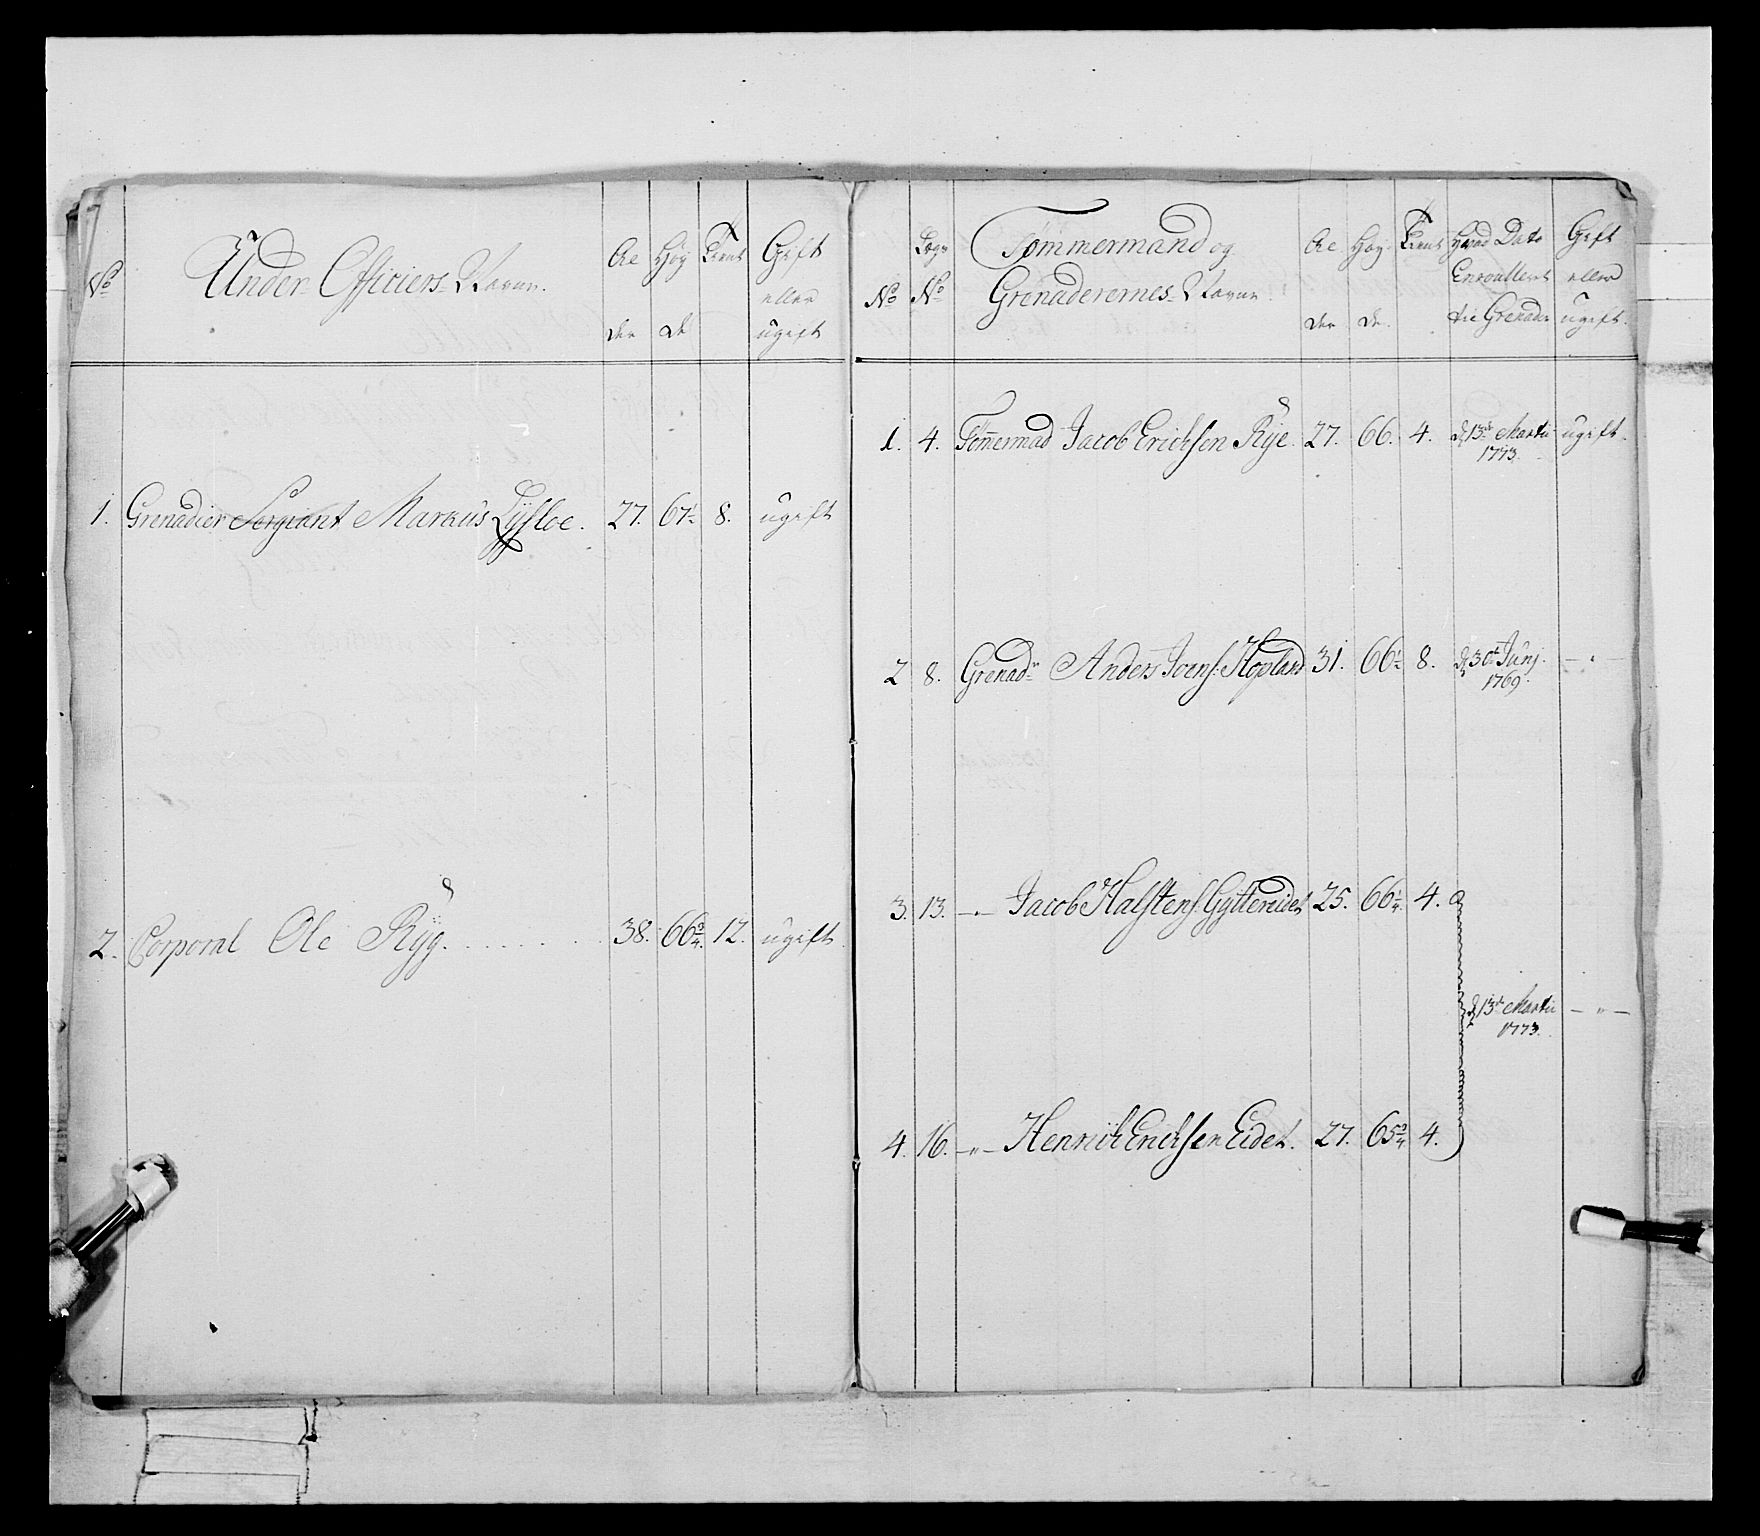 No
Under Officiers Navne.
Al
der
Høy
de
Tient
Gift
eller
ugift
1. Grenadier Sergiant Markus Lysloe. 27. 67½ 8. ugift
2. Corporal Ole Ryg. 38. 66¾. 12. ugift
No
Lægs
No
Tømmermand og
Grenaderernes Navne.
Al
der
Høy
de.
Tient
Hvad Dato
Enroulleret
til Grenader
Gift
eller
ugift.
1. 4. Tømermād Jacob Erichsen Rye. 27. 66. 4. d 13de Martii ugift.
1773.
2 8. Grenadr Anders Joens: Hopland 31. 66½ 8. d 30te Junj. —"—
1769.
3. 13. —"— Jacob Halstens: Gyttereidet 25. 66¼. 4.
d 13de Martii —"—
1773.
4. 16. —"— Henrich Erichsen Eidet. 27. 65¾ 4.